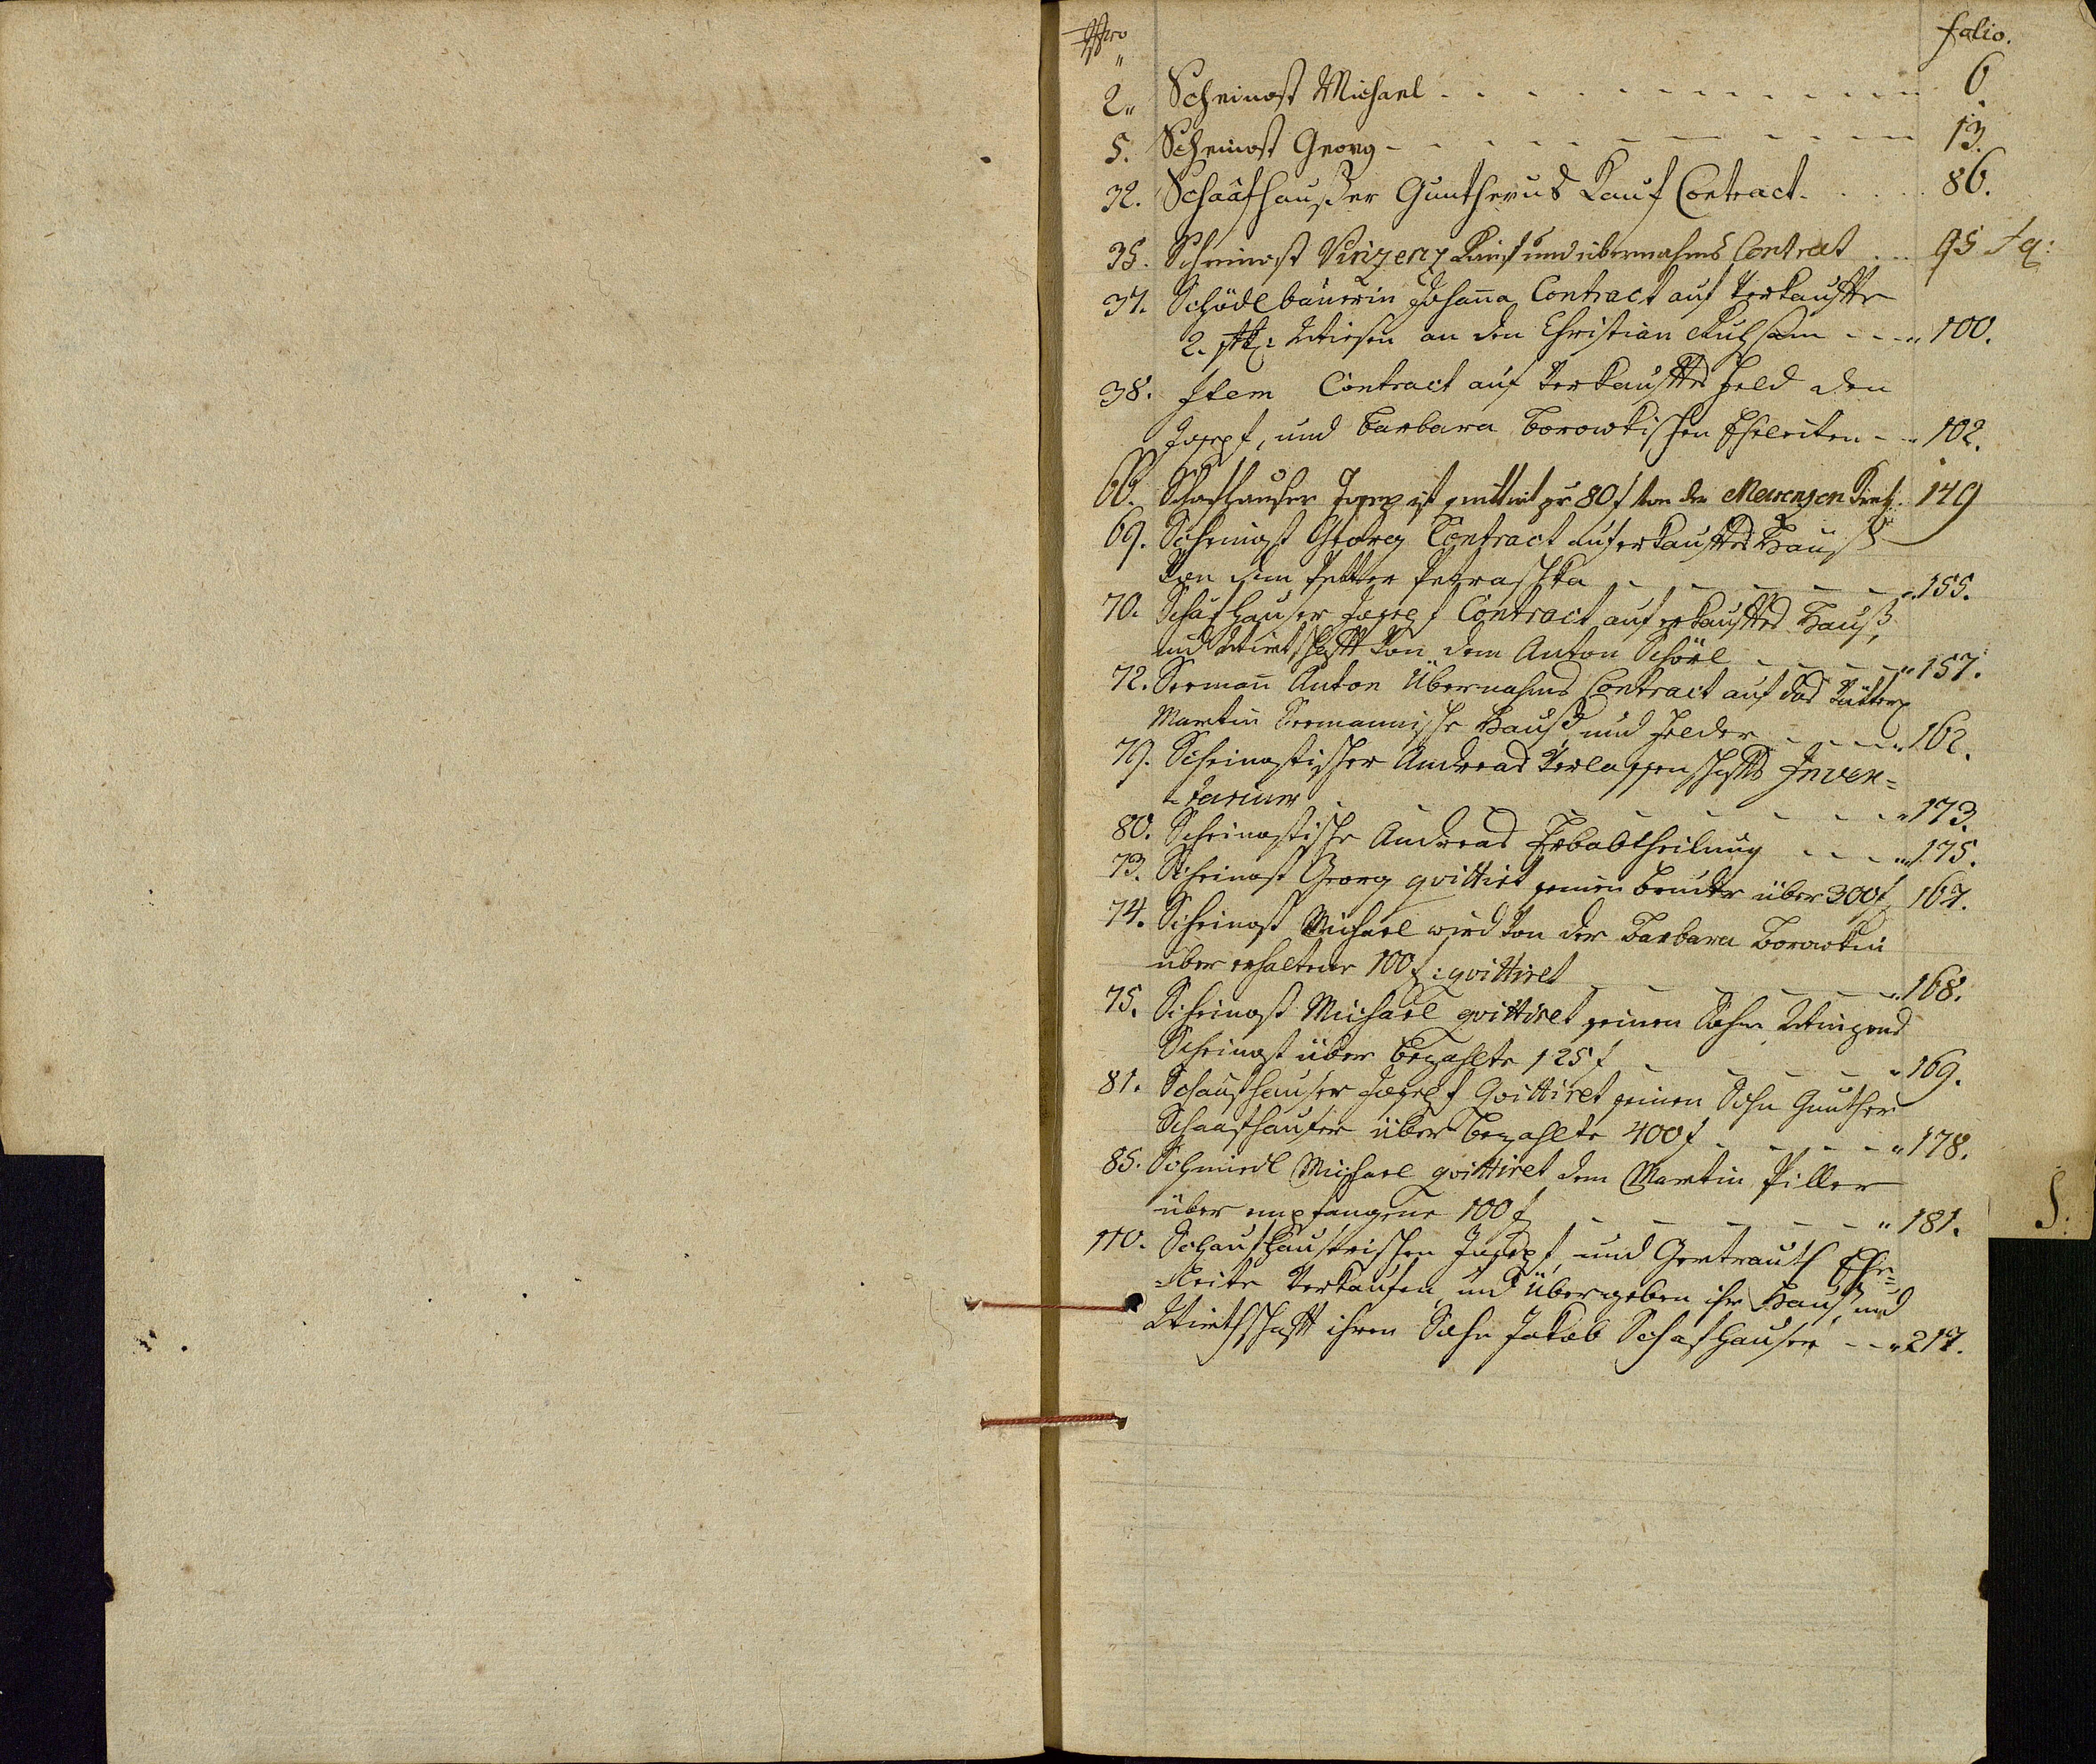 Nro folio.
2. Scheinost Michael - - - 6
5. Scheinost Georg - - - 13.
32. Schaafhausser Guntherus Kauf Contract. 86.
35. Scheinost Vinzenz Kauf und übernahms Contract 95
37. Schödlbäuerin Johanna Contract auf verkauffte
2. stk: Wiesen an den Christian - - - 100.
38. Item Contract auf verkaufftes Feld den
Joseph, und Barbara Borowkischen Eheleiten - 102.
66. Schafhauser Joseph ist quittirt pr 80 f von der 149
69. Scheinost Georg Contract auf erkaufftes Hauß
von dem Petter Petraschka - - - 155.
70. Schafhauser Joseph Contract auf erkaufftes Hauß,
und Wirtschafft von dem Anton Schörl - - - 157.
72. Seemann Anton Übernahms Contract auf das
Martin Seemannische Hauß und Felder - - - 162.
79. Scheinostischer Andreas Verlassenschaffts Inven=
=tarium - - - 173.
80. Scheinostische Andreas Erbabtheilung - - - 175.
73. Scheinost Georg quittirt seinen Bruder über 300 f 167.
74. Scheinost Michael wird von der Barbara Borowkin
über erhaltene 100 f: quittiret - - - 168.
75. Scheinost Michael quittiret seinen Sohn
Scheinost über bezahlte 125 f - - - 169.
81. Schaufhauser Joseph Quittiret seinen Sohn Gunther
Schaafhauser über bezahlte 400 f - - - 178.
85. Schmiedl Michael quittiret dem Martin Piller
über empfangene 100 f - - - 181.
S:
110. Schaufhauserischen Joseph, und Gertrauth Ehe=
=leite Verkaufen, und Übergeben ihr Hauß, und
Wirthschafft ihren Sohn Jakob Schafhauser - - - 217.